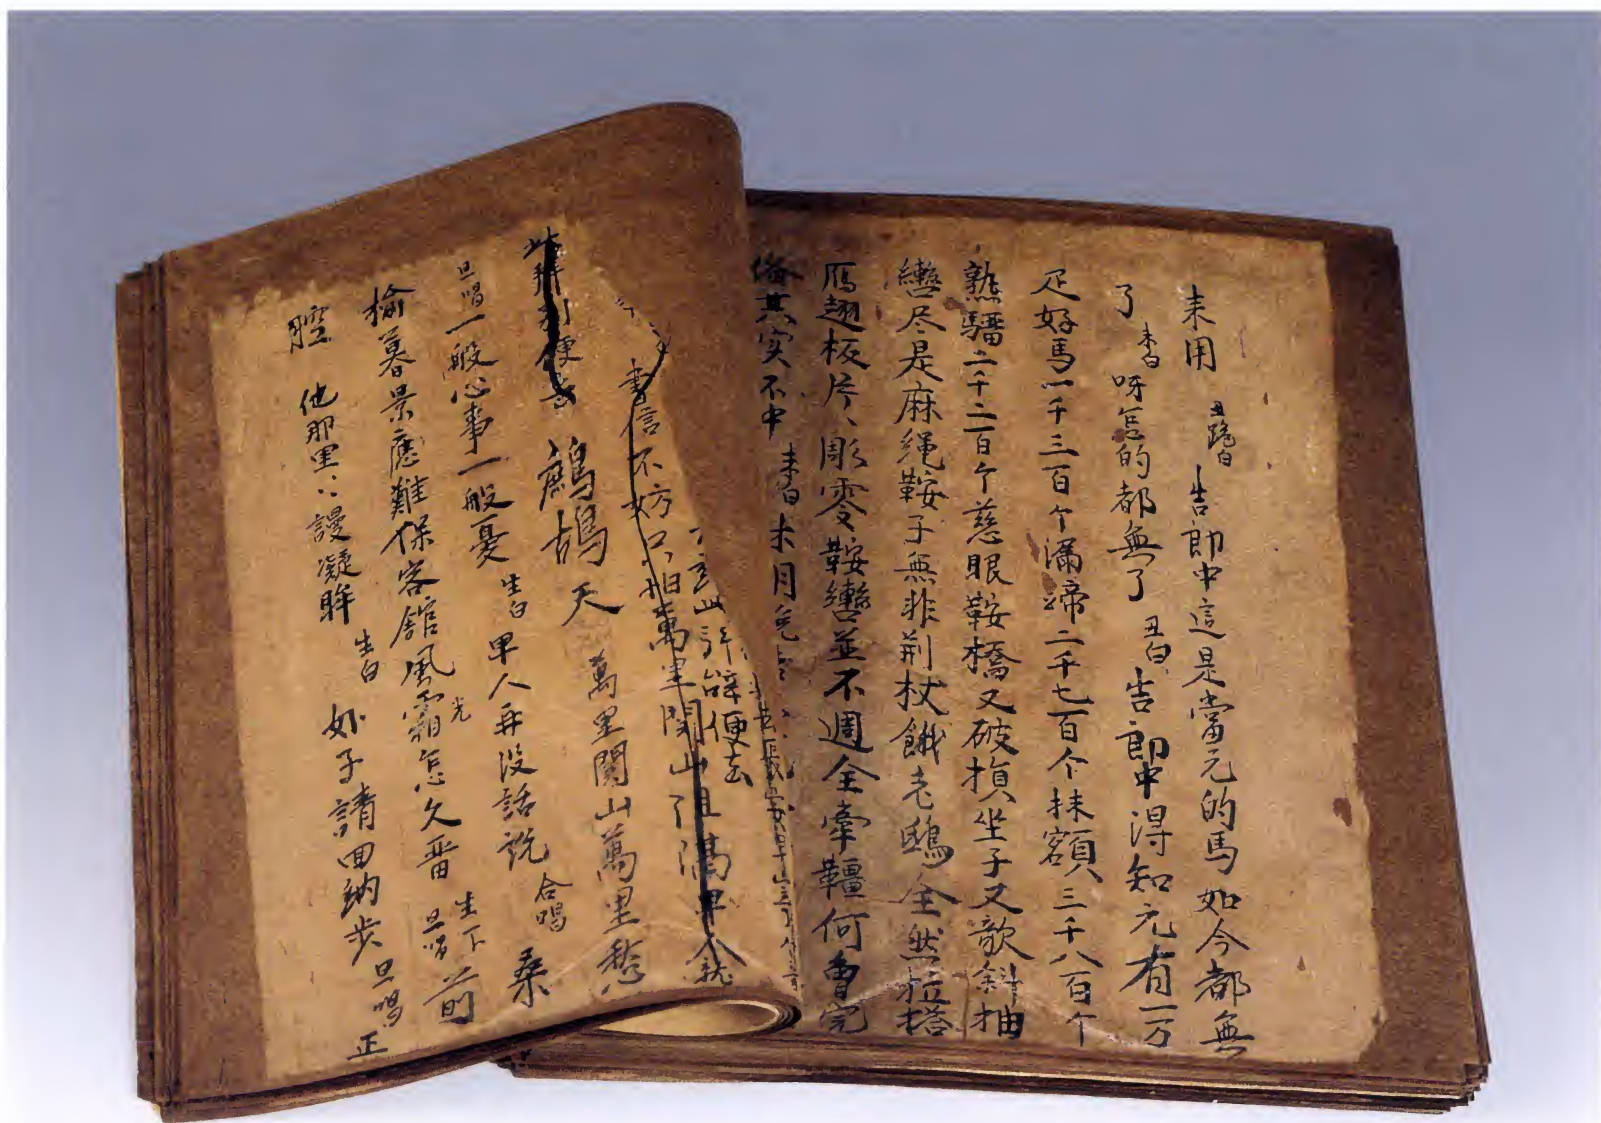 来用 丑跪白 告郎中這是當元的馬如今都無
了 末白 呀怎的都無了 丑白 告郎中得知元有一万
疋好馬一千三百个漏蹄二千七百个抹額三千八百个
熟騮二千二百个慈眼鞍橋又破損坐子又欹斜抽
轡尽是麻绳鞍子無非荆杖餓老鴟全然拉搭
鴈翅板片〻彫零鞍轡並不週全牽韁何曾完
俻其实不中 末白
此辤别便去
書信不妨只怕萬里関山阻隔
鷓鴣天 萬里関山萬里愁
旦唱 一般心事一般憂 生白 卑人再没話説 合唱 桑
榆暮景應難保客館風霜怎久畱 生下 旦唱 前
腔 他那里〻謾凝眸 生白 娘子請回納步 旦唱 正